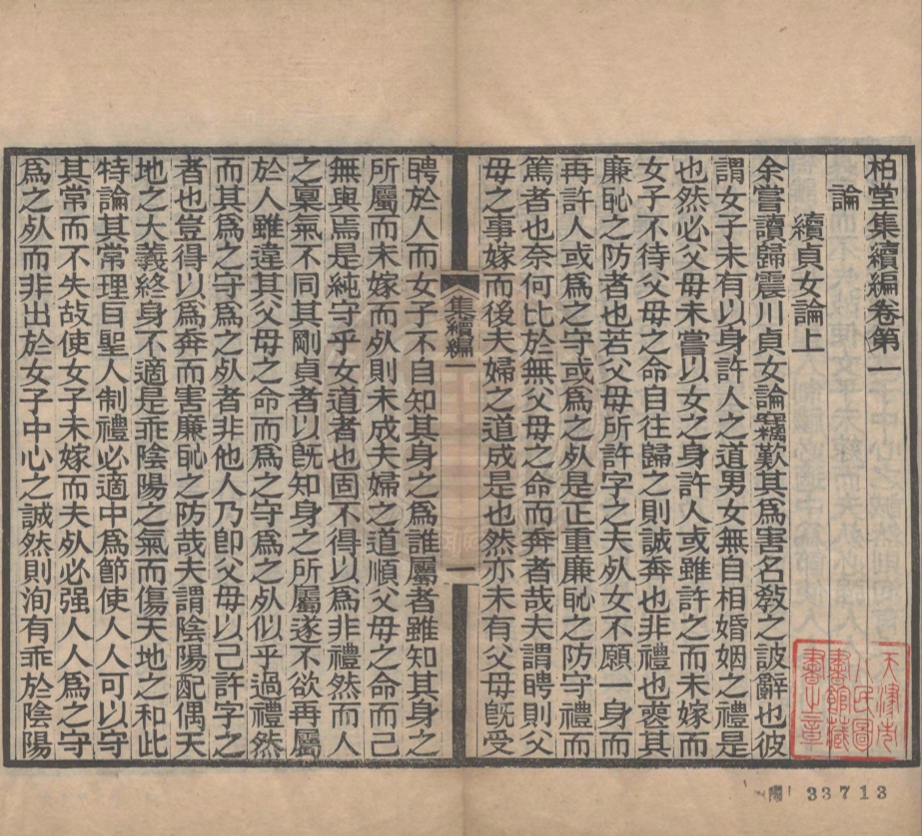 柏堂集續編卷第一
論
續貞女論上
余嘗讀歸震川貞女論竊歎其爲害名敎之詖辭也彼
謂女子未有以身許人之道男女無自相婚姻之禮是
也然必父母未嘗以女之身許人或雖許之而未嫁而
女子不待父母之命自往歸之則誠奔也非禮也喪其
廉恥之防者也若父母所許字之夫死女不願一身而
再許人或爲之守或爲之死是正重廉恥之防守禮而
篤者也奈何比於無父母之命而奔者哉夫謂聘則父
母之事嫁而後夫婦之道成是也然亦未有父母旣受
集續編一
一
聘於人而女子不自知其身之爲誰屬者雖知其身之
所屬而未嫁而死則未成夫婦之道順父母之命而己
無與焉是純守乎女道者也固不得以爲非禮然而人
之稟氣不同其剛貞者以旣知身之所屬遂不欲再屬
於人雖違其父母之命而爲之守爲之死似乎過禮然
而其爲之守爲之死者非他人乃卽父母以己許字之
者也豈得以爲奔而害廉恥之防哉夫謂陰陽配偶天
地之大義終身不適是乖陰陽之氣而傷天地之和此
特論其常理目聖人制禮必適中爲節使人人可以守
其常而不失故使女子未嫁而夫死必强人人爲之守
爲之死而非出於女子中心之誠然則洵有乖於陰陽
天津市
人民圖
書館藏
書之章
33713